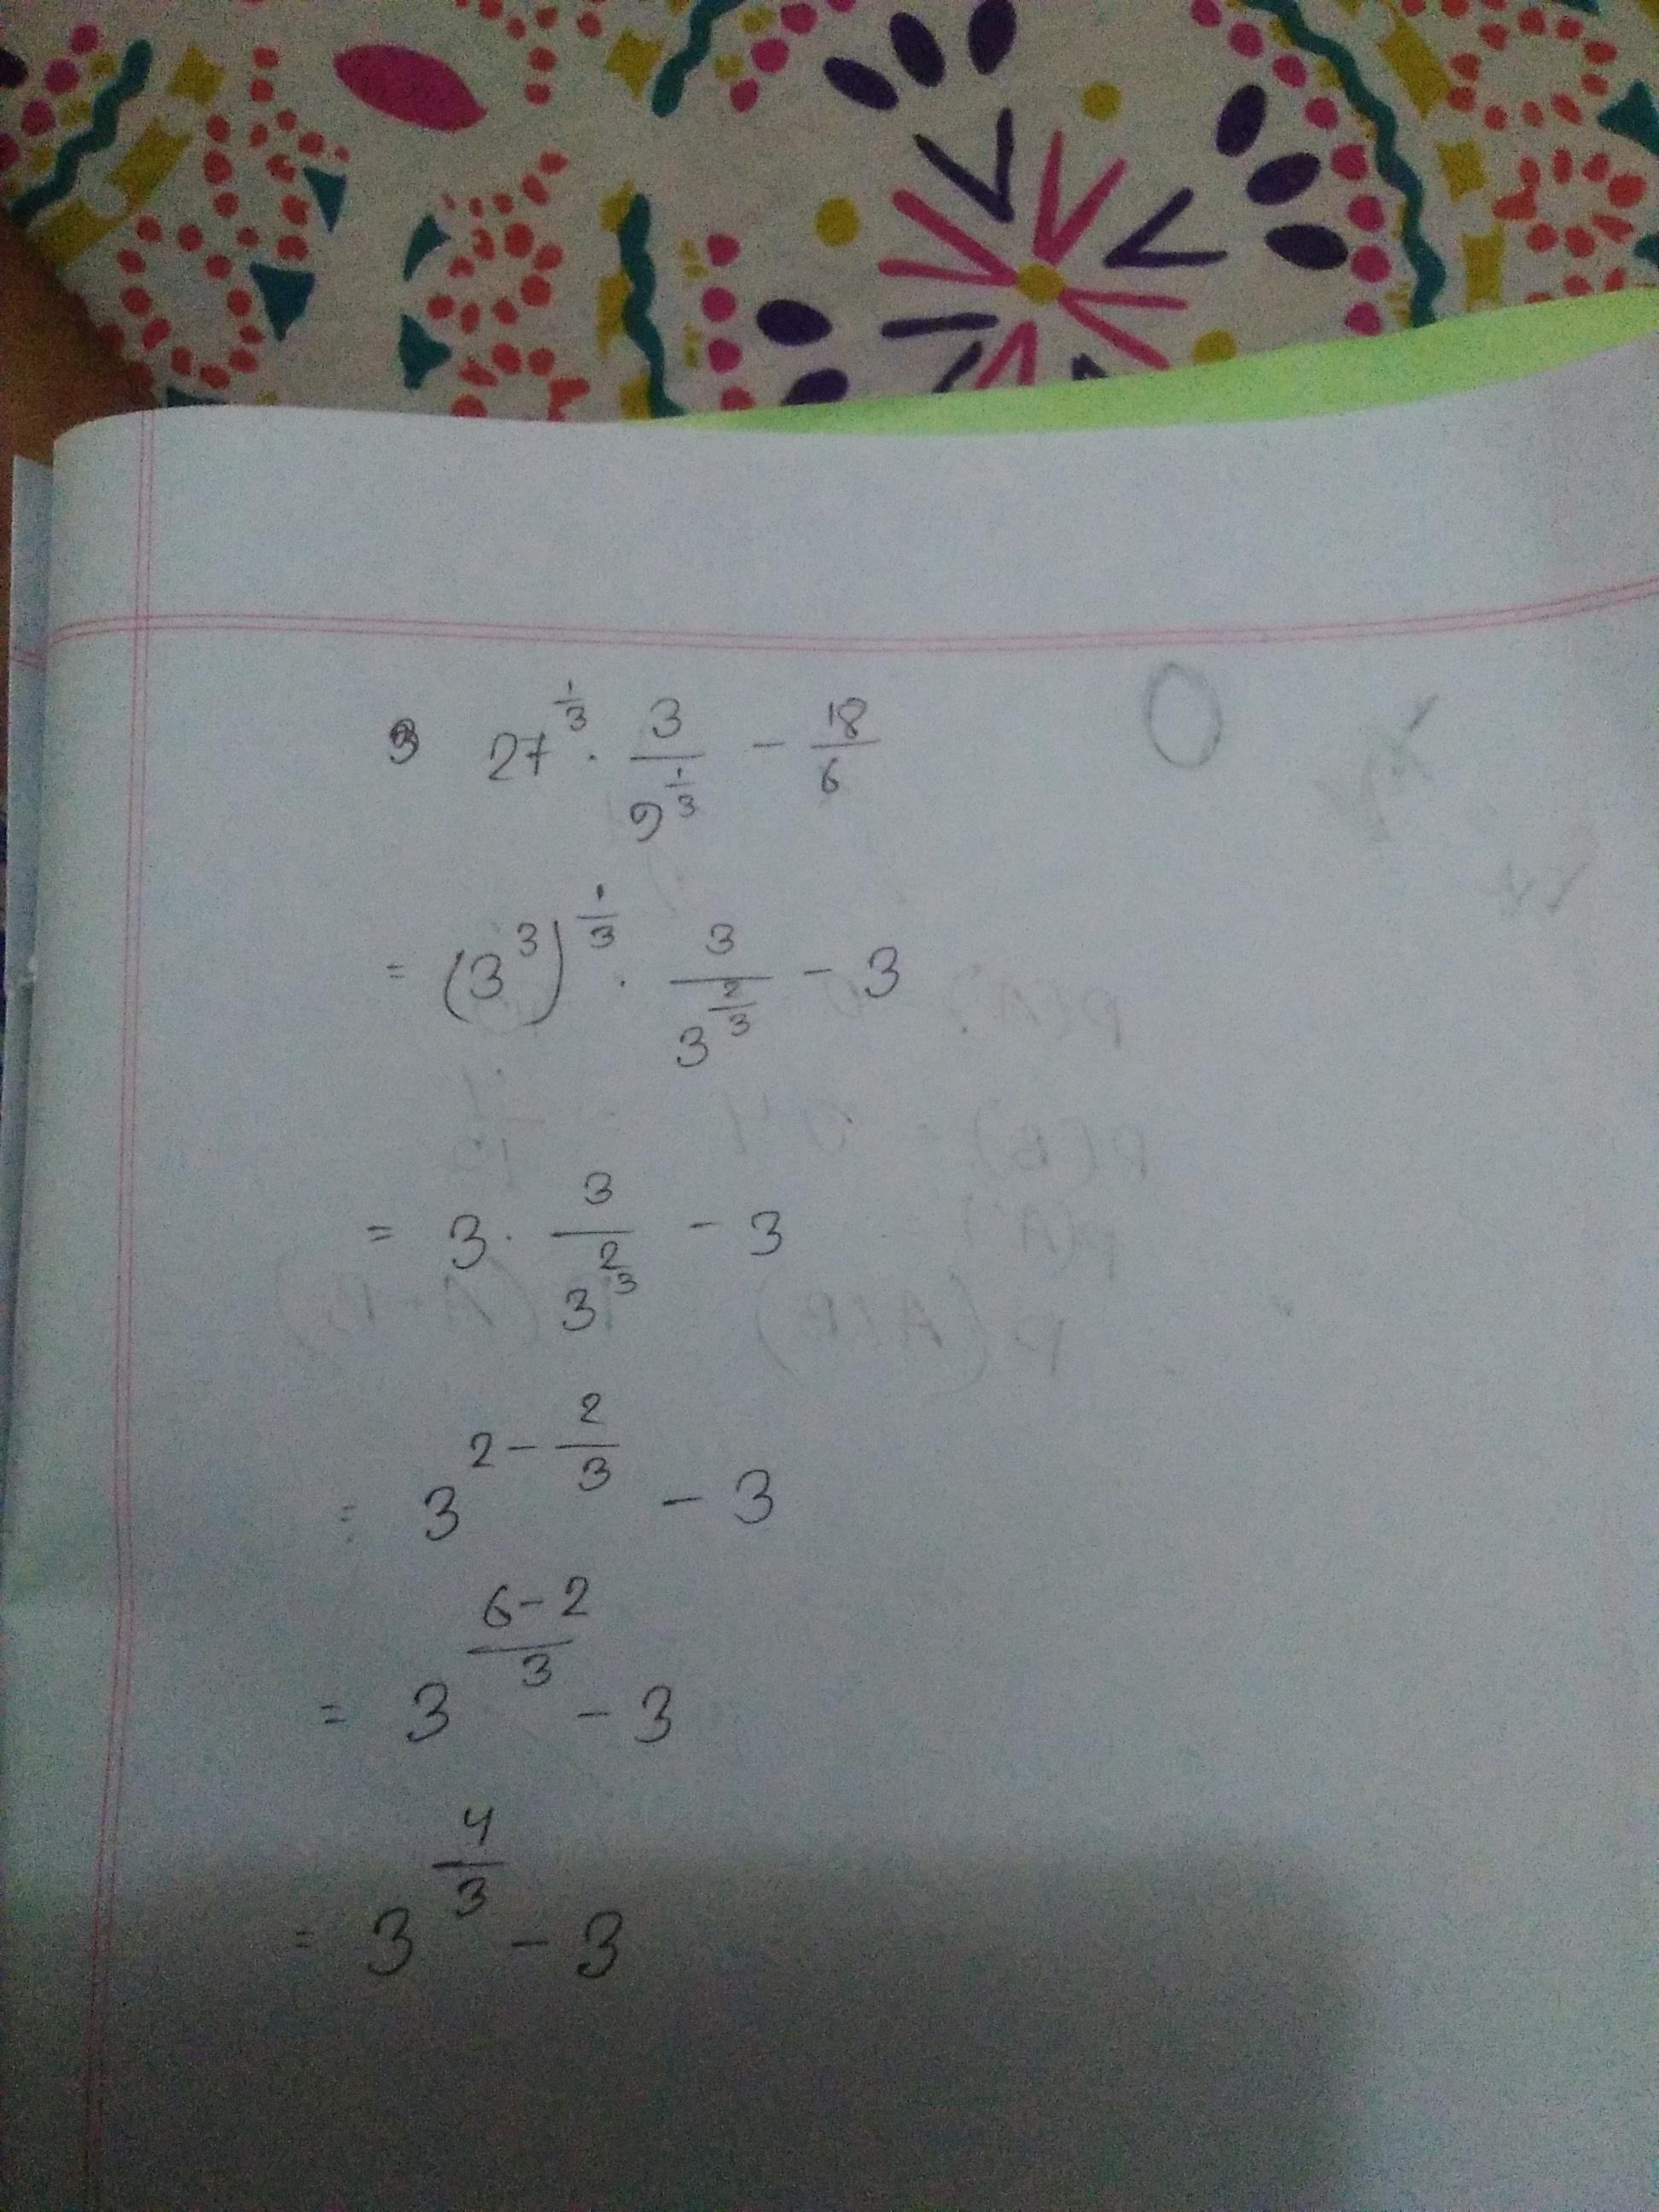 27^(1/3) · 3/9^(1/3) - 18/6
= (3^3)^(1/3) · 3/3^(2/3) - 3
= 3 · 3/3^(2/3) - 3
= 3^(2 - 2/3) - 3
= 3^((6-2)/3) - 3
= 3^(4/3) - 3